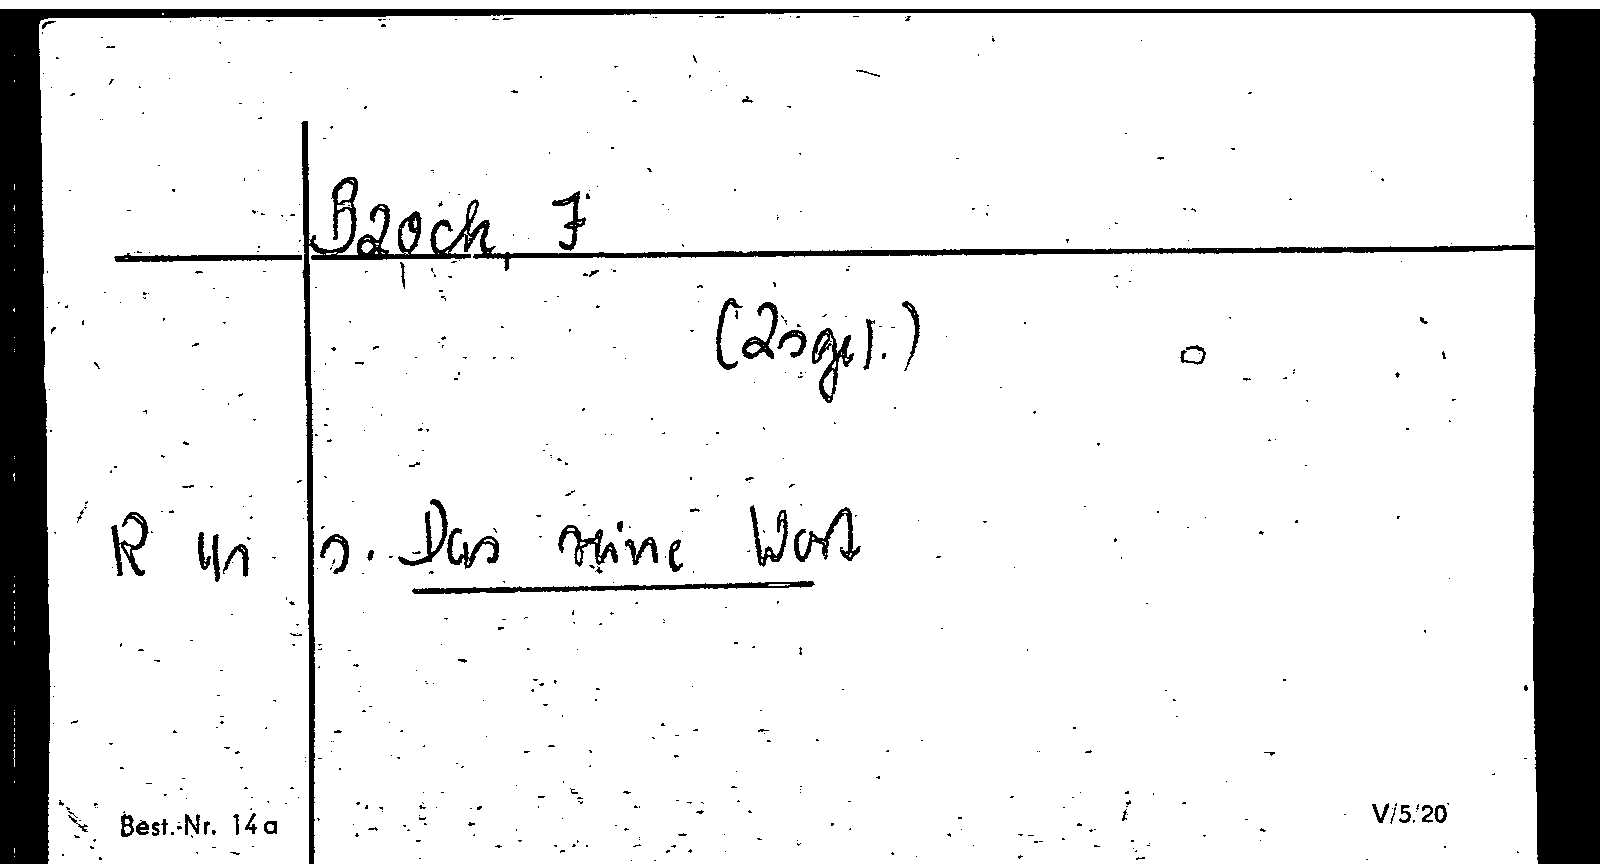 Broch, F
(Hsgb.)
R 4n s. Das reine Wort
Best.-Nr. 14a
V/5/20